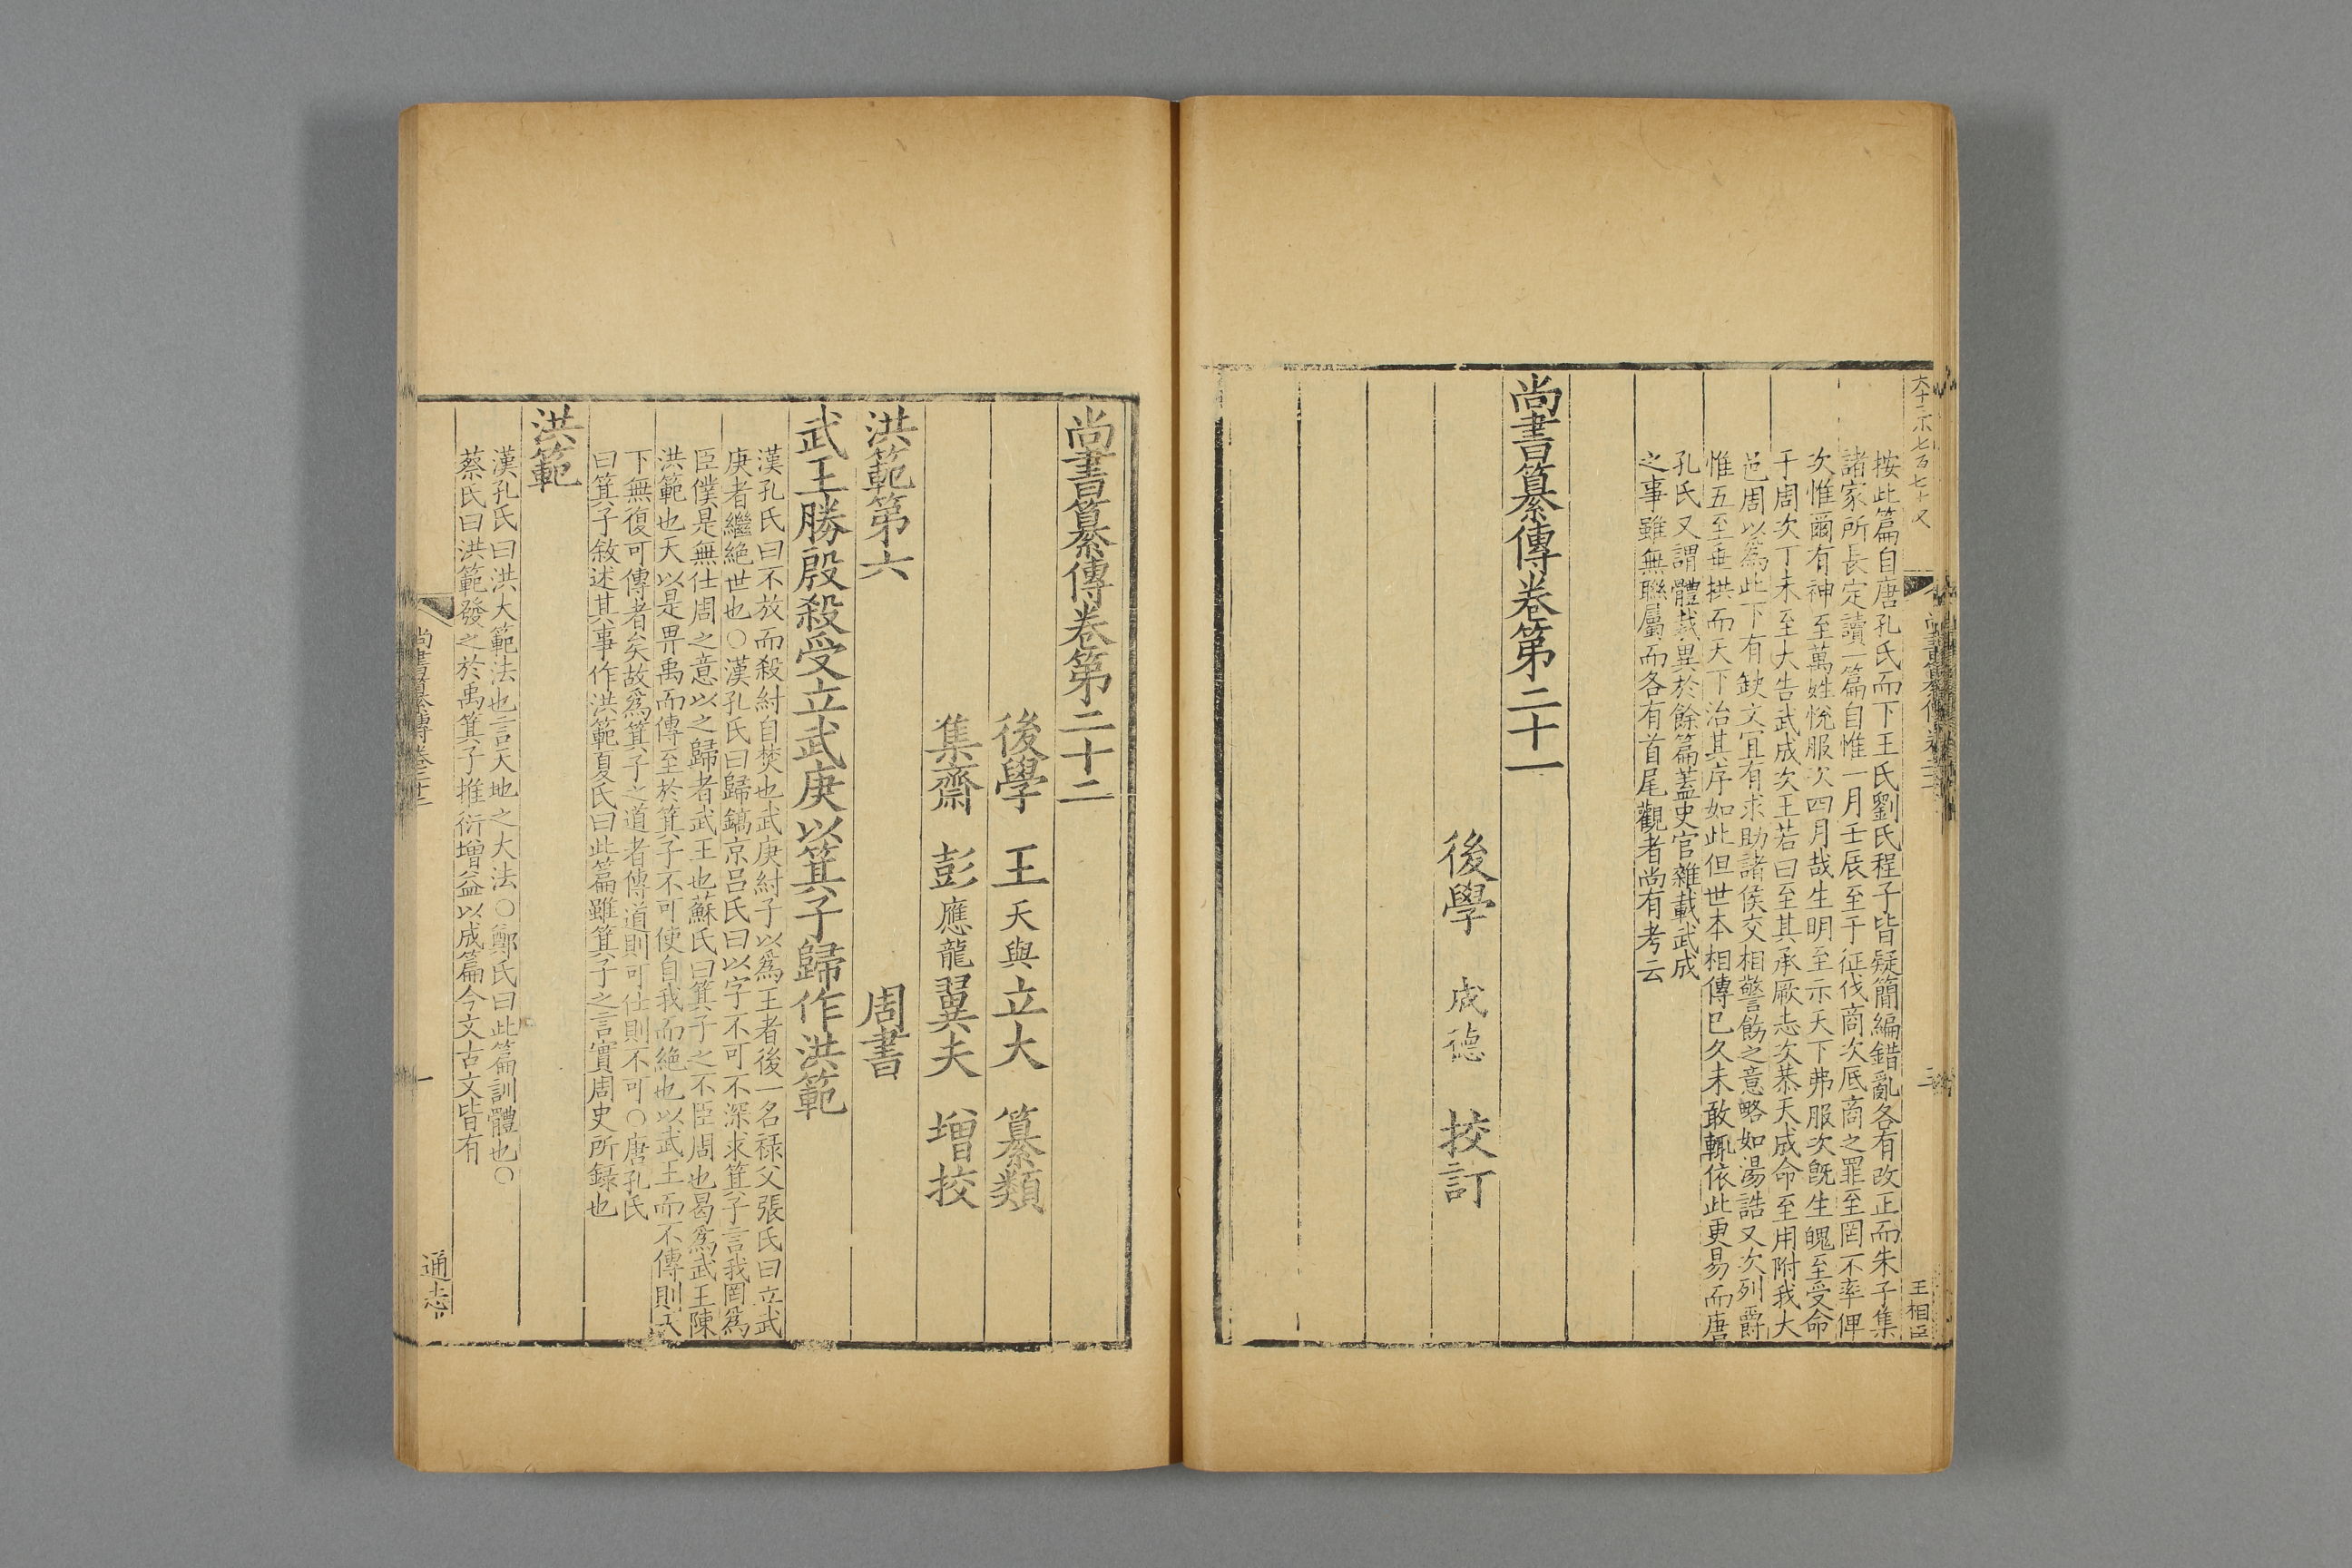 按此篇自唐孔氏而下王氏劉氏程子皆疑簡編錯亂各有改正而朱子集
諸家所長定讀一篇自惟一月壬辰至于征伐商次厎商之罪至罔不率俾
次惟爾有神至萬姓悅服次四月哉生明至示天下弗服次旣生魄至受命
于周次丁未至大告武成次王若曰至其承厥志次恭天成命至用附我大
邑周以爲此下有缺文冝有求助諸侯交相警飭之意略如湯誥又次列爵
惟五至垂拱而天下治其序如此但世本相傳已久未敢輒依此更易而唐
孔氏又謂體裁異於餘篇蓋史官雜載武成
之事雖無聯屬而各有首尾觀者尚有考云
尚書纂傳卷第二十一
後學 成德 挍訂
王相臣
尚書纂傳卷第二十二
後學 王天與立大 纂類
集齋 彭應龍翼夫 增挍
洪範第六 周書
武王勝殷殺受立武庚以箕子歸作洪範
漢孔氏曰不放而殺紂自焚也武庚紂子以爲王者後一名禄父張氏曰立武
庚者繼絶世也○漢孔氏曰歸鎬京呂氏曰以字不可不深求箕子言我罔爲
臣僕是無仕周之意以之歸者武王也蘇氏曰箕子之不臣周也曷爲武王陳
洪範也天以是畀禹而傳至於箕子不可使自我而絶也以武王而不傳則天
下無復可傳者矣故爲箕子之道者傳道則可仕則不可○唐孔氏
曰箕子敘述其事作洪範夏氏曰此篇雖箕子之言實周史所録也
洪範
漢孔氏曰洪大範法也言天地之大法○鄭氏曰此篇訓體也○
蔡氏曰洪範發之於禹箕子推衍增益以成篇今文古文皆有
尚書纂傳卷二十二
一
通志